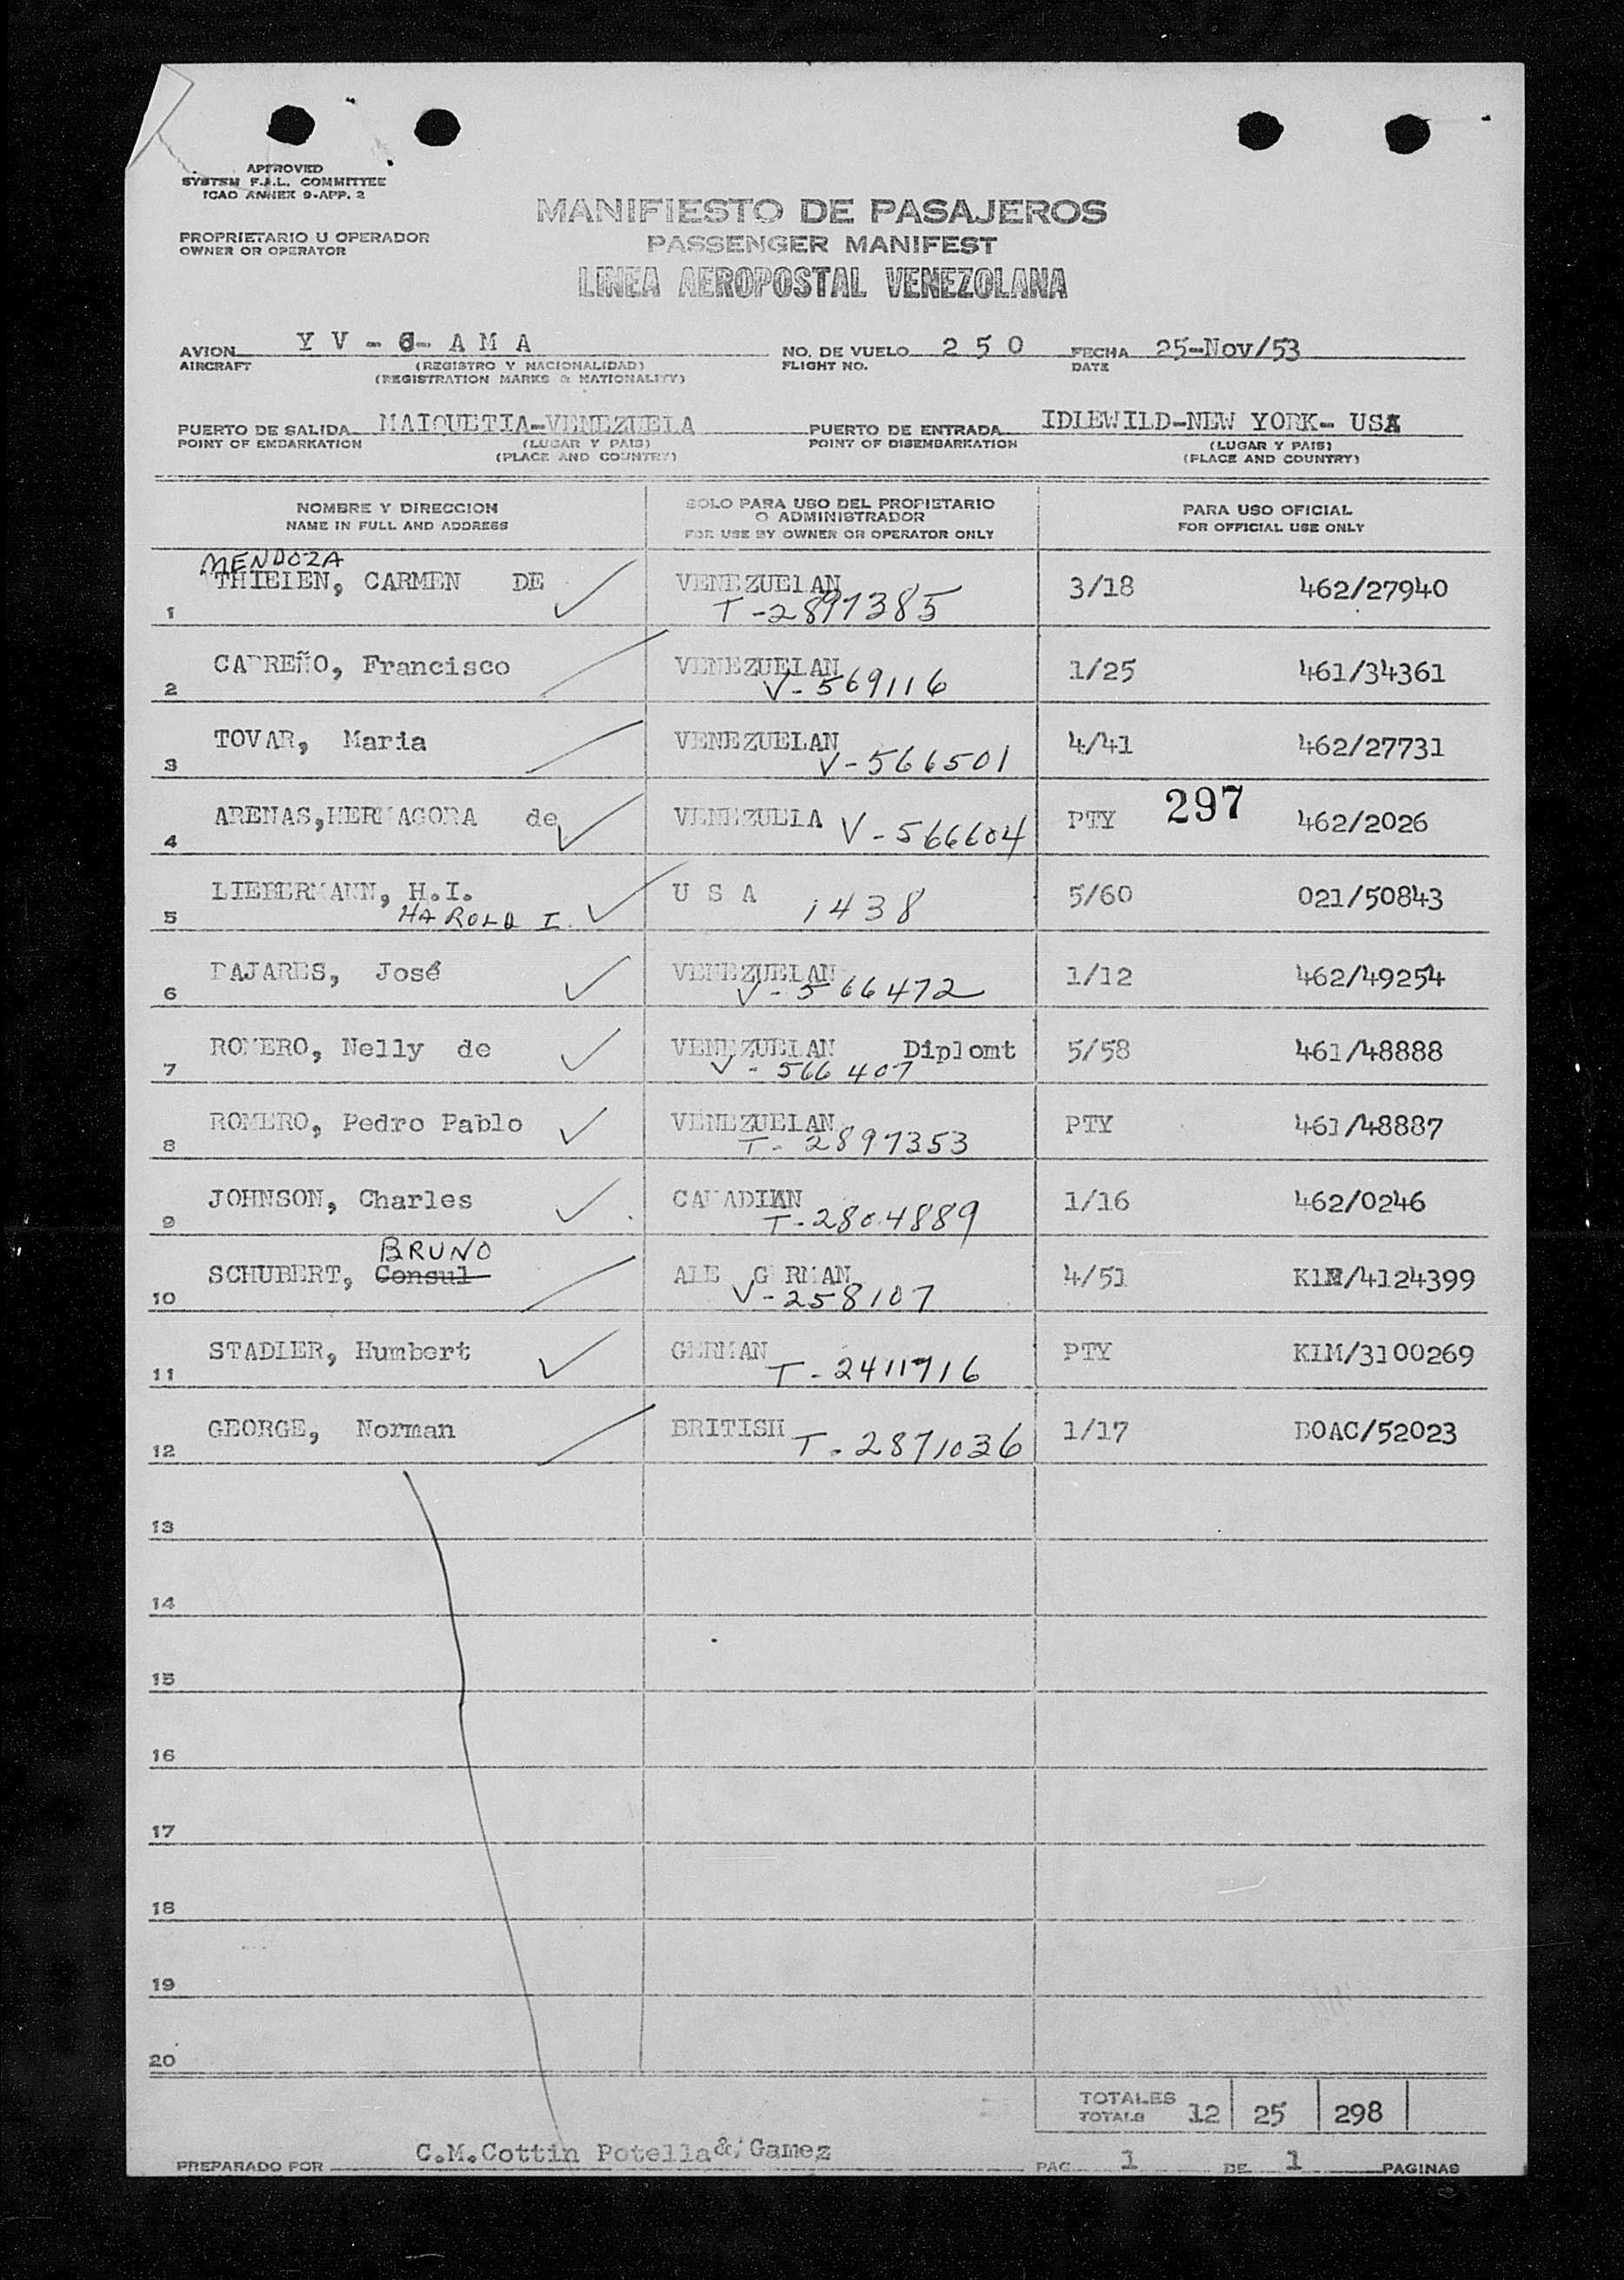 APPROVED
SYSTEM F.A.L. COMMITTEE
ICAO ANNEX 9-APP. 2
MANIFIESTO DE PASAJEROS
PROPRIETARIO U OPERADOR
OWNER OR OPERATOR
PASSENGER MANIFEST
LINEA AEROPOSTAL VENEZOLANA
AVION Y V - C - A M A NO. DE VUELO 2 5 0 FECHA 25-Nov/53
AIRCRAFT (REGISTRO Y NACIONALIDAD) FLIGHT NO. DATE
(REGISTRATION MARKS & NATIONALITY)
PUERTO DE SALIDA MAIQUETIA-VENEZUELA PUERTO DE ENTRADA IDLEWILD-NEW YORK- USA
POINT OF EMBARKATION (LUGAR Y PAIS) POINT OF DISEMBARKATION (LUGAR Y PAIS)
(PLACE AND COUNTRY) (PLACE AND COUNTRY)
NOMBRE Y DIRECCION SOLO PARA USO DEL PROPIETARIO PARA USO OFICIAL
O ADMINISTRADOR
NAME IN FULL AND ADDRESS FOR USE BY OWNER OR OPERATOR ONLY FOR OFFICIAL USE ONLY
MENDOZA
THIELEN, CARMEN DE VENEZUELAN 3/18 462/27940
1 T-2897385
CARREÑO, Francisco VENEZUELAN 1/25 461/34361
2 V-569116
TOVAR, Maria VENEZUELAN 4/41 462/27731
3 V-566501
ARENAS,HERMAGORA de VENEZUELA V-566604 PTY 297 462/2026
4
LIEBERMANN, H.I. U S A 1438 5/60 021/50843
5 HAROLD I.
PAJARES, José VENEZUELAN 1/12 462/49254
6 V-566472
ROMERO, Nelly de VENEZUELAN Diplomt 5/58 461/48888
7 V-566407
ROMERO, Pedro Pablo VENEZUELAN PTY 461/48887
8 T-2897353
JOHNSON, Charles CANADIAN 1/16 462/0246
9 T-2804889
BRUNO
SCHUBERT, Consul ALE GERMAN 4/51 KLM/4124399
10 V-258107
STADLER, Humbert GERMAN PTY KLM/3100269
11 T-2411716
GEORGE, Norman BRITISH 1/17 BOAC/52023
12 T-2871036
13
14
15
16
17
18
19
20
TOTALES
TOTALS 12 25 298
PREPARADO POR C.M.Cottin Potella & Gamez PAG. 1 DE 1 PAGINAS